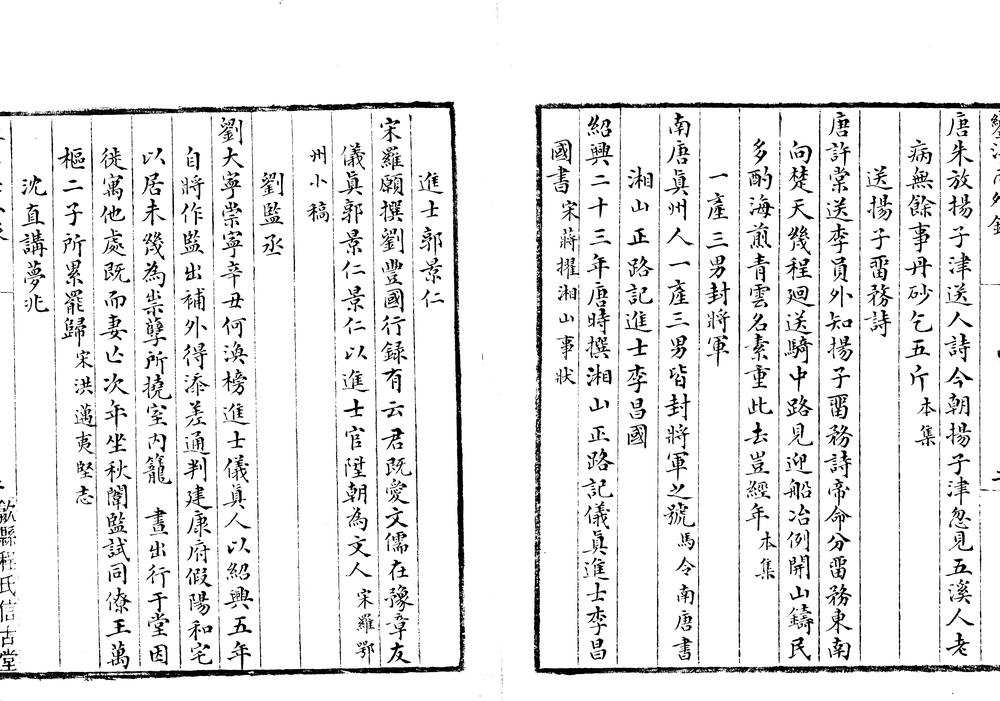 唐朱放揚子津送人詩今朝揚子津忽見五溪人老
病無餘事丹砂乞五斤本集
送揚子畱務詩
唐許棠送李員外知揚子畱務詩帝命分畱務東南
向楚天幾程廻送騎中路見迎船冶例開山鑄民
多酌海煎青雲名素重此去豈經年本集
一產三男封將軍
南唐眞州人一產三男皆封將軍之號馬令南唐書
湘山正路記進士李昌國
紹興二十三年唐時撰湘山正路記儀眞進士李昌
國書宋蔣擢湘山事狀
進士郭景仁
宋羅願撰劉豐國行録有云君既愛文儒在豫章友
儀眞郭景仁景仁以進士官陞朝為文人宋羅鄂
州小稿
劉監丞
劉大寧崇寧辛丑何渙榜進士儀眞人以紹興五年
自將作監出補外得添差通判建康府假陽和宅
以居未幾為祟孽所撓室內籠 晝出行于堂因
徙寓他處既而妻亡次年坐秋闈監試同僚王萬
樞二子所累罷歸宋洪邁夷堅志
沈直講夢兆
歙縣程氏信古堂